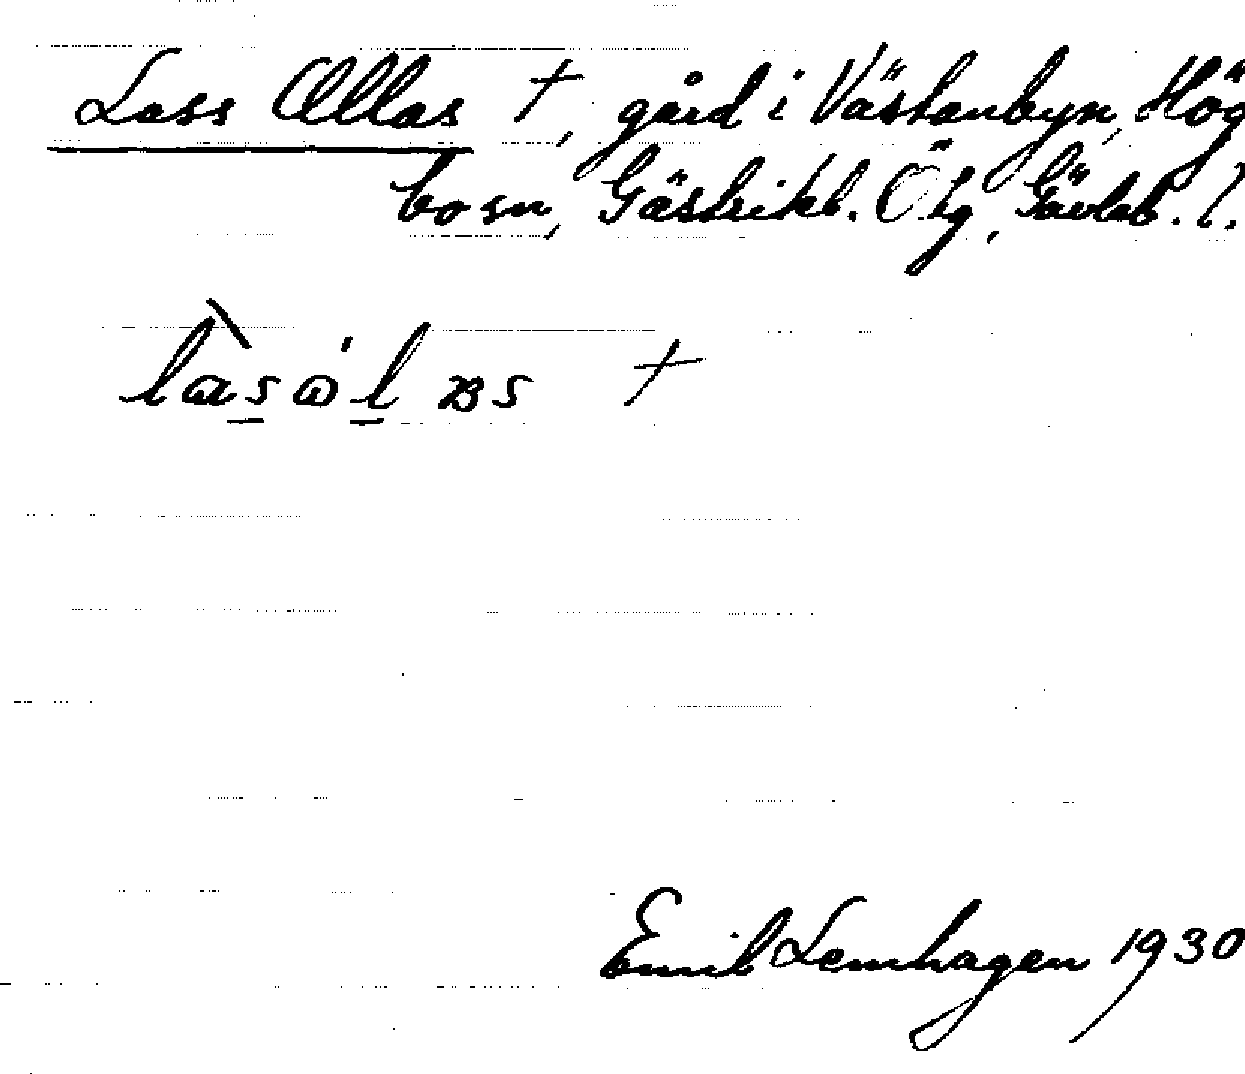 Lass Ollas †, gård i Västanbyn, Hög
bosn, Gästrikl. Ö tg, Gävleb. l.
Emil Lemhagen 1930